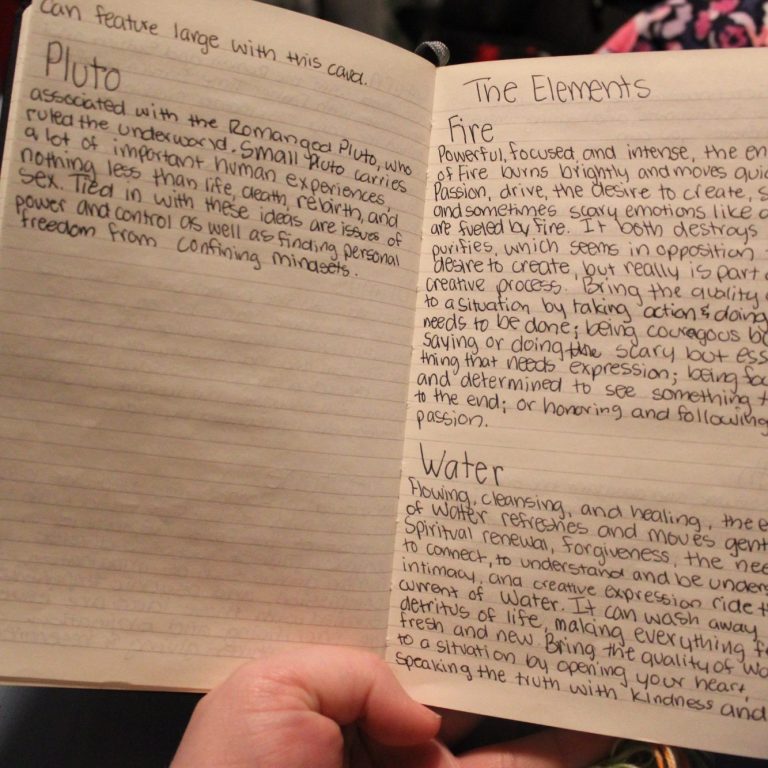 can feature large with this card.
Pluto
associated with the Roman god Pluto, who
ruled the underworld. Small Pluto carries
a lot of important human experiences,
nothing less than life, death, rebirth, and
sex. Tied in with these ideas are issues of
power and control as well as finding personal
freedom from confining mindsets.
The Elements
Fire
Powerful, focused, and intense, the en
of Fire burns brightly and moves quic
Passion, drive, the desire to create, s
and sometimes scary emotions like a
are fueled by fire. It both destroys
purifies, which seems in opposition
desire to create, but really is part o
creative process. Bring the quality
to a situation by taking action & doing
needs to be done; being couragous by
saying or doing the scary but ess
thing that needs expression; being foc
and determined to see something t
to the end; or honoring and following
passion.
Water
Flowing, cleansing, and healing, the e
of Water refreshes and moves gent
Spiritual renewal, forgiveness, the nee
to connect, to understand and be unders
intimacy, and creative expression ride t
current of Water. It can wash away
detritus of life, making everything fe
fresh and new. Bring the quality of Wa
to a situation by opening your heart,
speaking the truth with kindness and